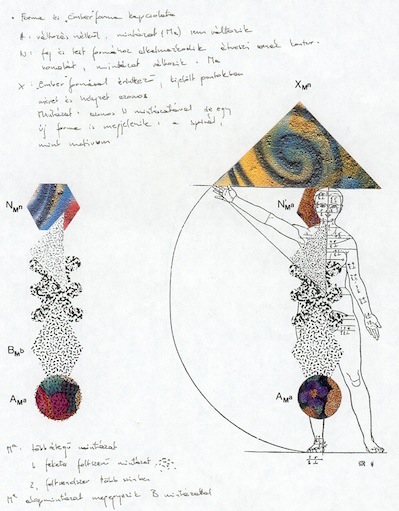 Forma és "Ember"forma kapcsolata
A: változás nélkül, mintázat (Ma) sem változik
N: fej és test formához alkalmazkodik
mintázat változik. Ma
X: "Ember" formával érintkező, kijelölt pontokban
méret és helyzet azonos
azonos N mintázatával de egy
új forma is megjelenik: a spirál,
mint motívum
XMn
NMn
NMa
BMb
AMa
AMa
Mn. többrétegű mintázat
1. fekete foltszerű mintázat
2. foltrendszer több színben
Ma alapmintázat megegyezik B mintázattal